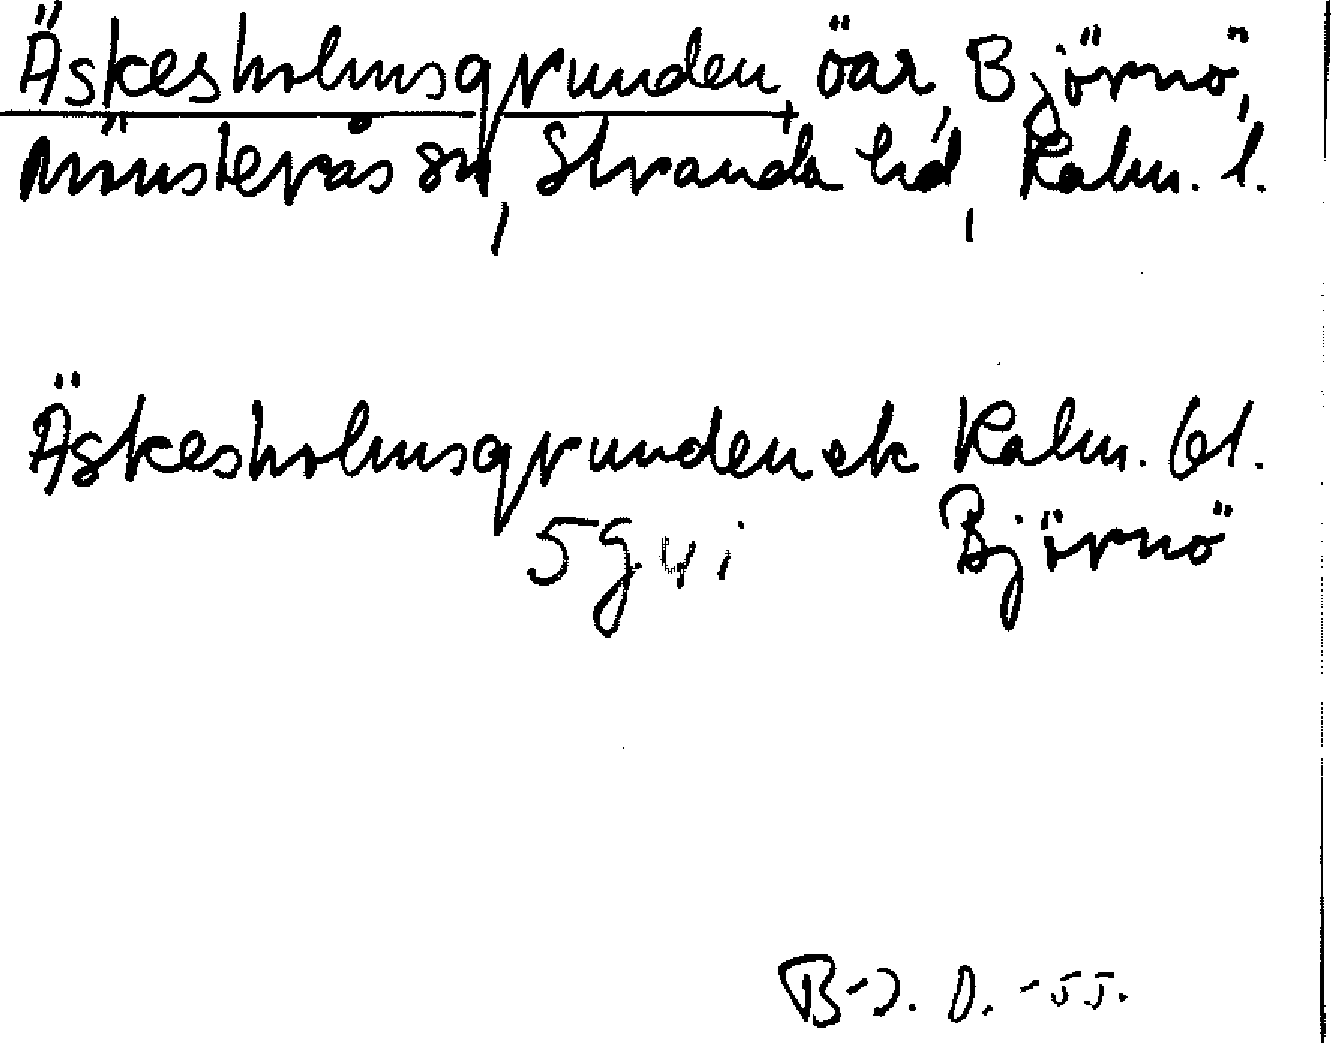 Äskesholmsgrunden, öar, Björnö,
Mönsterås sn, Stranda hd, Kalm. l.
Äskesholmsgrunden ek Kalm. bl.
5g4i Björnö
B-J. D. -55.